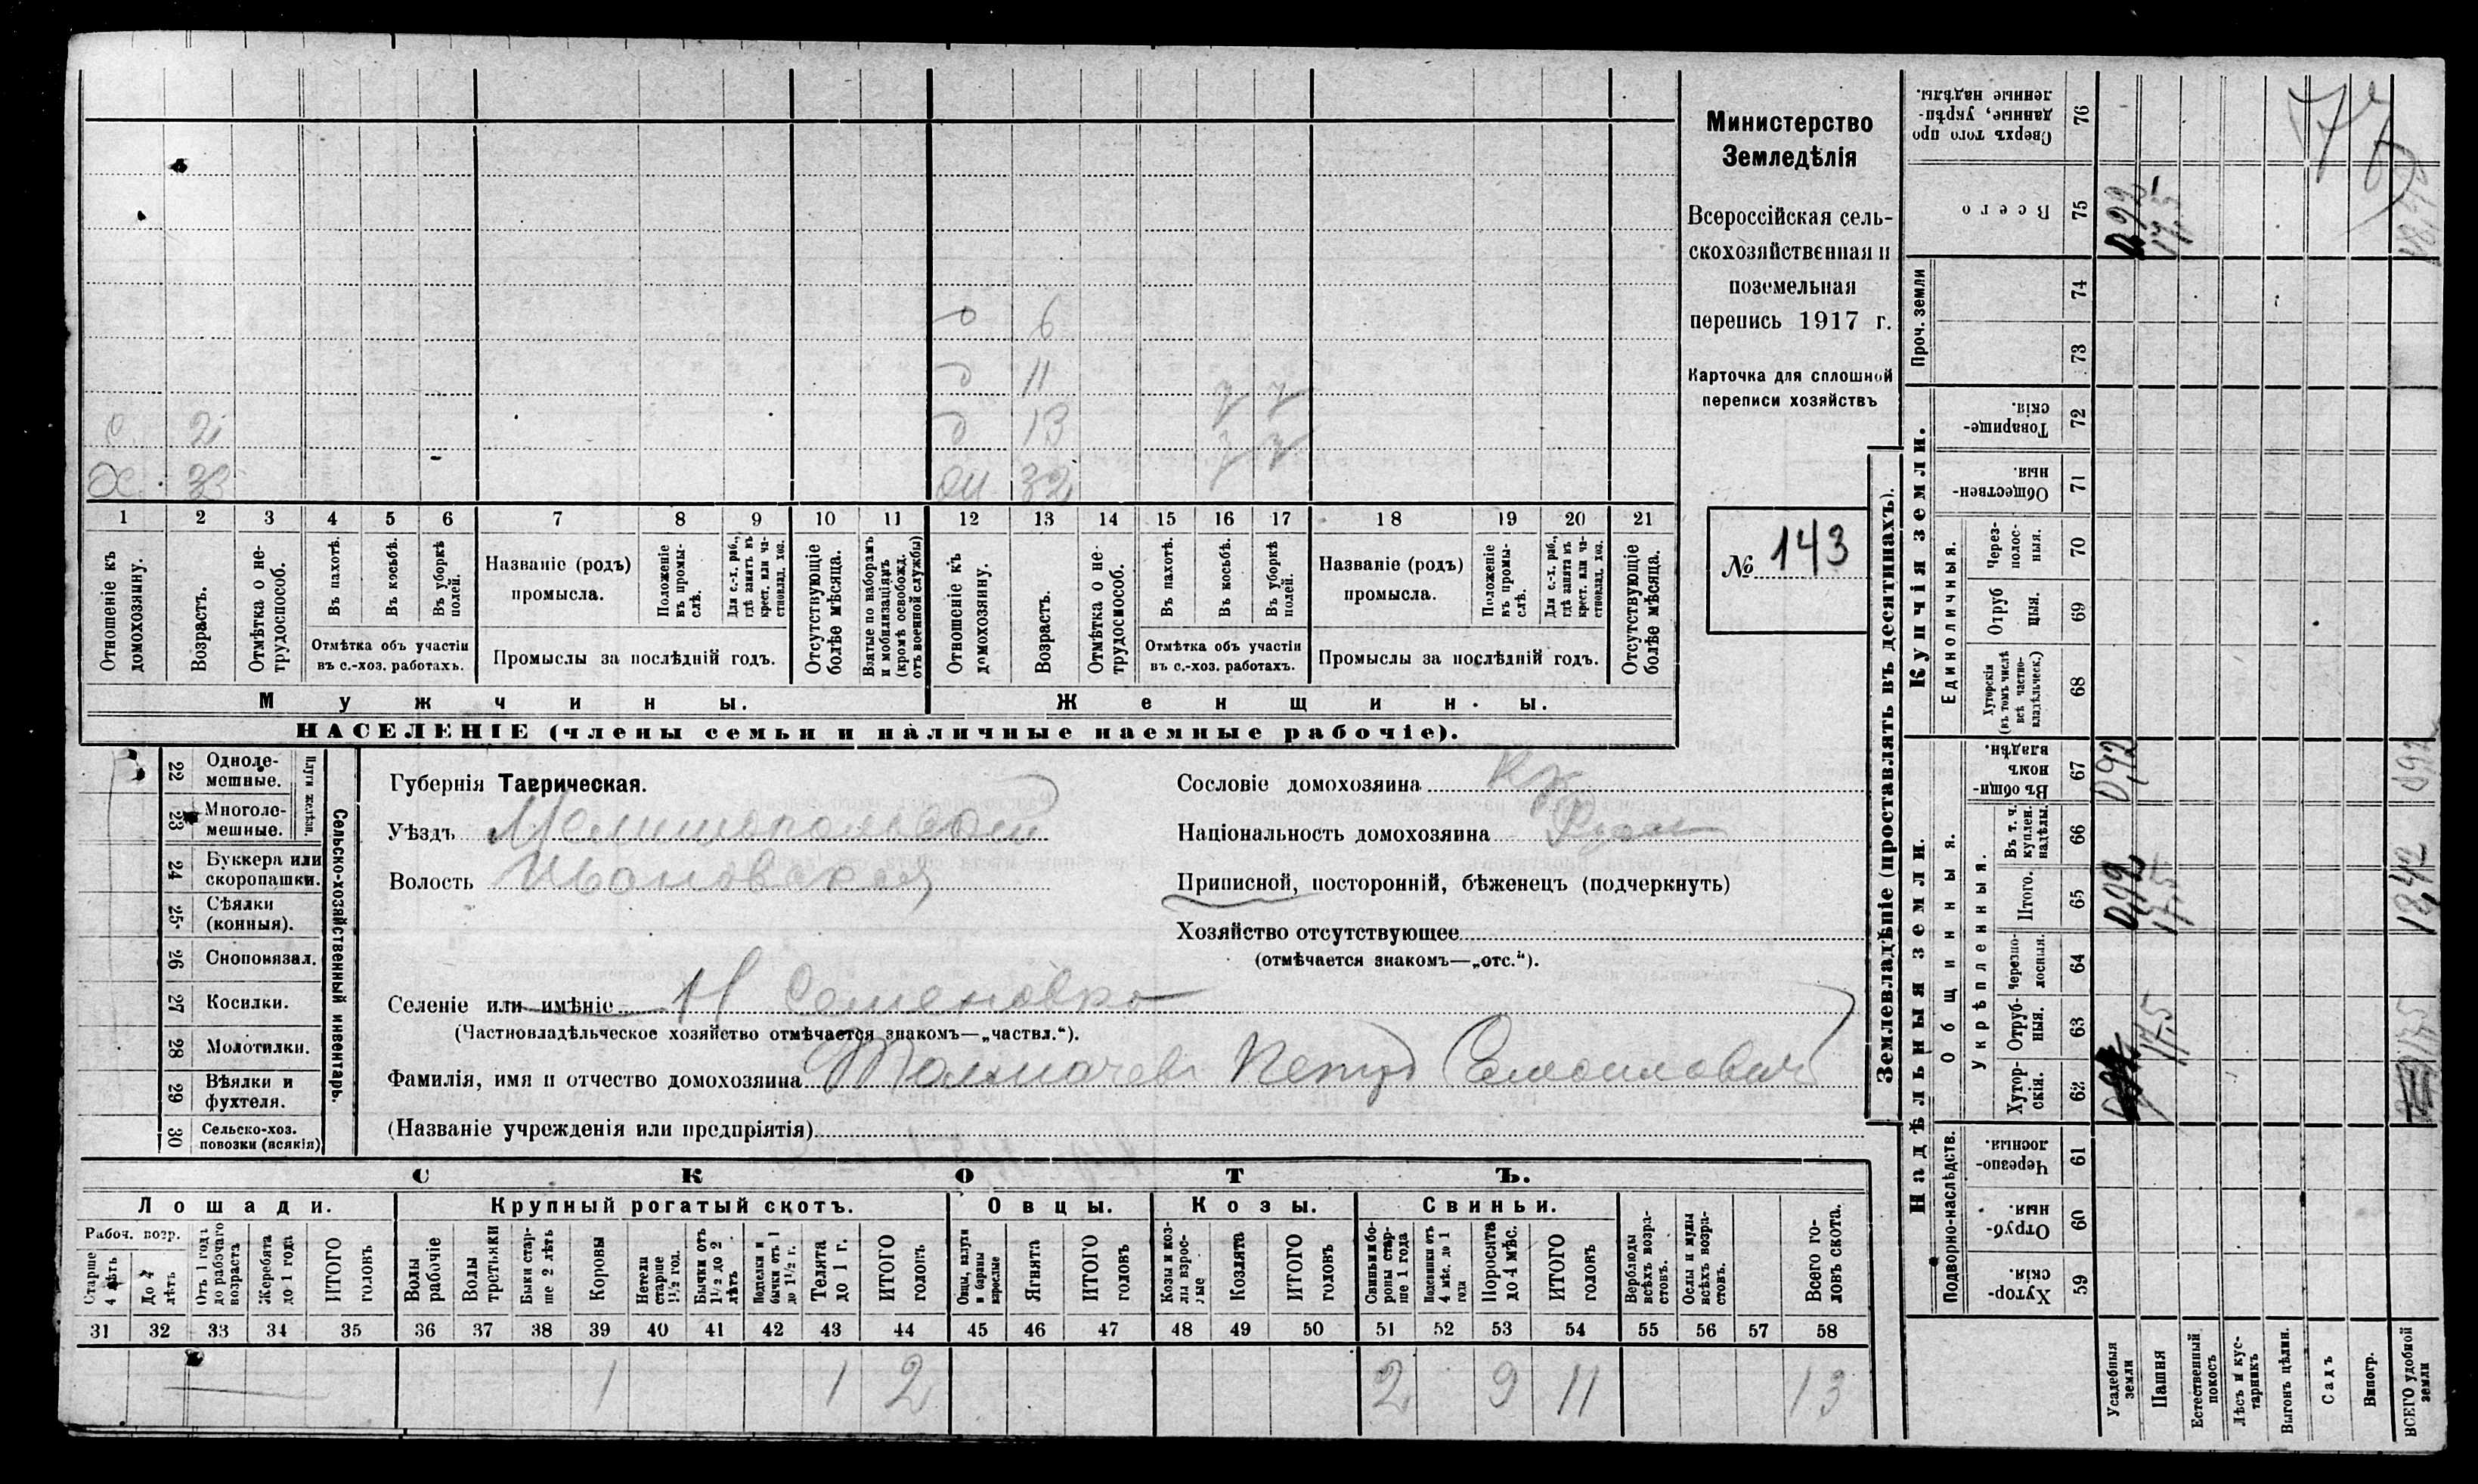 Министерство
Земледѣлія
Всероссійская сель-
скохозяйственная и
поземельная
перепись 1917 г.
Карточка для сплошной
переписи хозяйствъ
№ 143
д 6
д 11
с. 2 д 13
х. 33 жн 32
1 2 3 4 5 6 7 8 9 10 11 12 13 14 15 16 17 18 19 20 21
Отношеніе къ домохозяину.
Возрастъ.
Отмѣтка о не-трудоспособ.
Въ пахотѣ.
Въ косьбѣ.
Въ уборкѣ полей.
Отмѣтка объ участіи
въ с.-хоз. работахъ.
Названіе (родъ)
промысла.
Положеніе въ промы-слѣ.
Для с.-х. раб., гдѣ занятъ въ крест. или ча-стновлад. хоз.
Промыслы за послѣдній годъ.
Отсутствующіе болѣе мѣсяца.
Взятые по наборамъ и мобилизаціямъ (кромѣ освобожд. отъ военной службы)
Отношеніе къ домохозяину.
Возрастъ.
Отмѣтка о не-трудоспособ.
Въ пахотѣ.
Въ косьбѣ.
Въ уборкѣ полей.
Отмѣтка объ участіи
въ с.-хоз. работахъ.
Названіе (родъ)
промысла.
Положеніе въ промы-слѣ.
Для с.-х. раб., гдѣ занята въ крест. или ча-стновлад. хоз.
Промыслы за послѣдній годъ.
Отсутствующіе болѣе мѣсяца.
Мужчины. Женщины.
НАСЕЛЕНІЕ (члены семьи и наличные наемные рабочіе).
22 Однолемешные.
23 Многолемешные.
Плуги желѣзн.
24 Буккера или скоропашки.
25 Сѣялки (конныя).
26 Сноповязал.
27 Косилки.
28 Молотилки.
29 Вѣялки и фухтеля.
30 Сельско-хоз. повозки (всякія)
Сельско-хозяйственный инвентарь.
Губернія Таврическая.
Уѣздъ Мелитопольскій
Волость Ивановская
Сословіе домохозяина Кр
Національность домохозяина Русск
Приписной, посторонній, бѣженецъ (подчеркнуть)
Хозяйство отсутствующее
(отмѣчается знакомъ—„отс.“).
Селеніе или имѣніе Н Семеновка
(Частновладѣльческое хозяйство отмѣчается знакомъ—„частвл.“).
Фамилія, имя и отчество домохозяина Толмачевъ Петръ Самойловичъ
(Названіе учрежденія или предпріятія)
СКОТЪ.
Лошади. Крупный рогатый скотъ. Овцы. Козы. Свиньи.
Рабоч. возр.
Старше 4 лѣтъ
До 4 лѣтъ
Отъ 1 года до рабочаго возраста
Жеребята до 1 года
ИТОГО головъ
Волы рабочіе
Волы третьяки
Быки стар-ше 2 лѣтъ
Коровы
Нетели старше 1½ год.
Бычки отъ 1½ до 2 лѣтъ
Подтелки и бычки отъ 1 до 1½ г.
Телята до 1 г.
ИТОГО головъ
Овцы, валухи и бараны взрослые
Ягнята
ИТОГО головъ
Козы и коз-лы взрос-лые
Козлята
ИТОГО головъ
Свиньи и бо-ровы стар-ше 1 года
Подсвинки отъ 4 мѣс. до 1 года
Поросята до 4 мѣс.
ИТОГО головъ
Верблюды всѣхъ возра-стовъ.
Ослы и мулы всѣхъ возра-стовъ.
Всего го-ловъ скота.
31 32 33 34 35 36 37 38 39 40 41 42 43 44 45 46 47 48 49 50 51 52 53 54 55 56 57 58
1 1 2 2 9 11 13
Землевладѣніе (проставлять въ десятинахъ).
Надѣльныя земли.
Купчія земли.
Проч. земли
Подворно-наслѣдств.
Общинныя.
Укрѣпленныя.
Единоличныя.
Хутор-скія. 59
Отруб-ныя. 60
Черезпо-лосныя. 61
Хутор-скія. 62
Отруб-ныя. 63
Черезпо-лосныя. 64
Итого. 65
Въ т. ч. куплен. надѣлы. 66
Въ общин-номъ владѣн. 67
Хуторскія (въ томъ числѣ всѣ частно-владѣльческ.) 68
Отруб ныя. 69
Через-полос-ныя. 70
Обществен-ныя. 71
Товарище-скія. 72
73
74
Всего 75
Сверхъ того про данные, укрѣп-ленные надѣлы. 76
Усадебныя земли
Пашня
Естественный покосъ
Лѣсъ и кус-тарникъ
Выгонъ цѣлин.
Садъ
Виногр.
ВСЕГО удобной земли
0,92 0,92
17,5 17,5 17,5
17,5 18,42 0,92